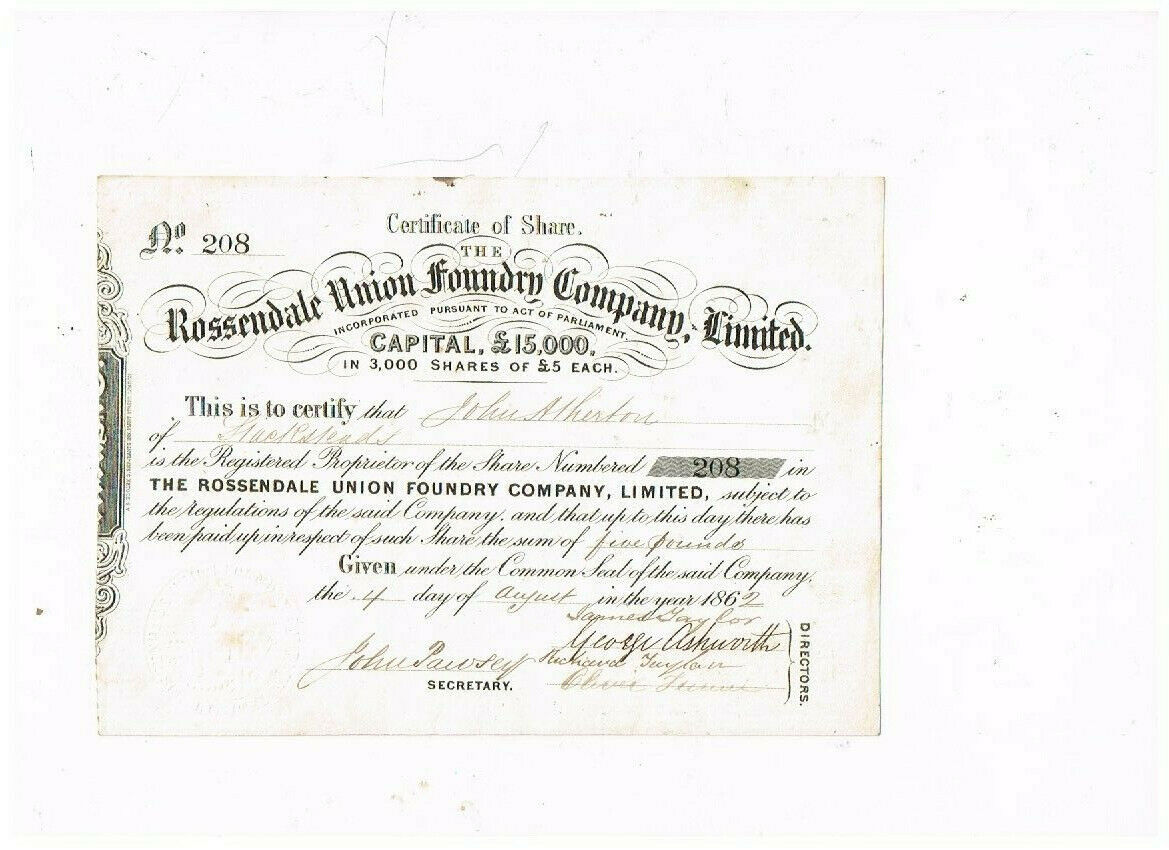 Certificate of Share.
No. 208
THE
Rossendale Union Foundry Company, Limited.
INCORPORATED PURSUANT TO ACT OF PARLIAMENT.
CAPITAL, £15,000,
IN 3,000 SHARES OF £5 EACH.
This is to certify that John Atherton
of Stacksteads
is the Registered Proprietor of the Share Numbered 208 in
THE ROSSENDALE UNION FOUNDRY COMPANY, LIMITED, subject to
the regulations of the said Company, and that up to this day there has
been paid up in respect of such Share the sum of five Pounds
Given under the Common Seal of the said Company,
the 4 day of August in the year 1862
James Taylor
George Ashworth
Richard Taylor
John Pawsey
SECRETARY.
DIRECTORS.